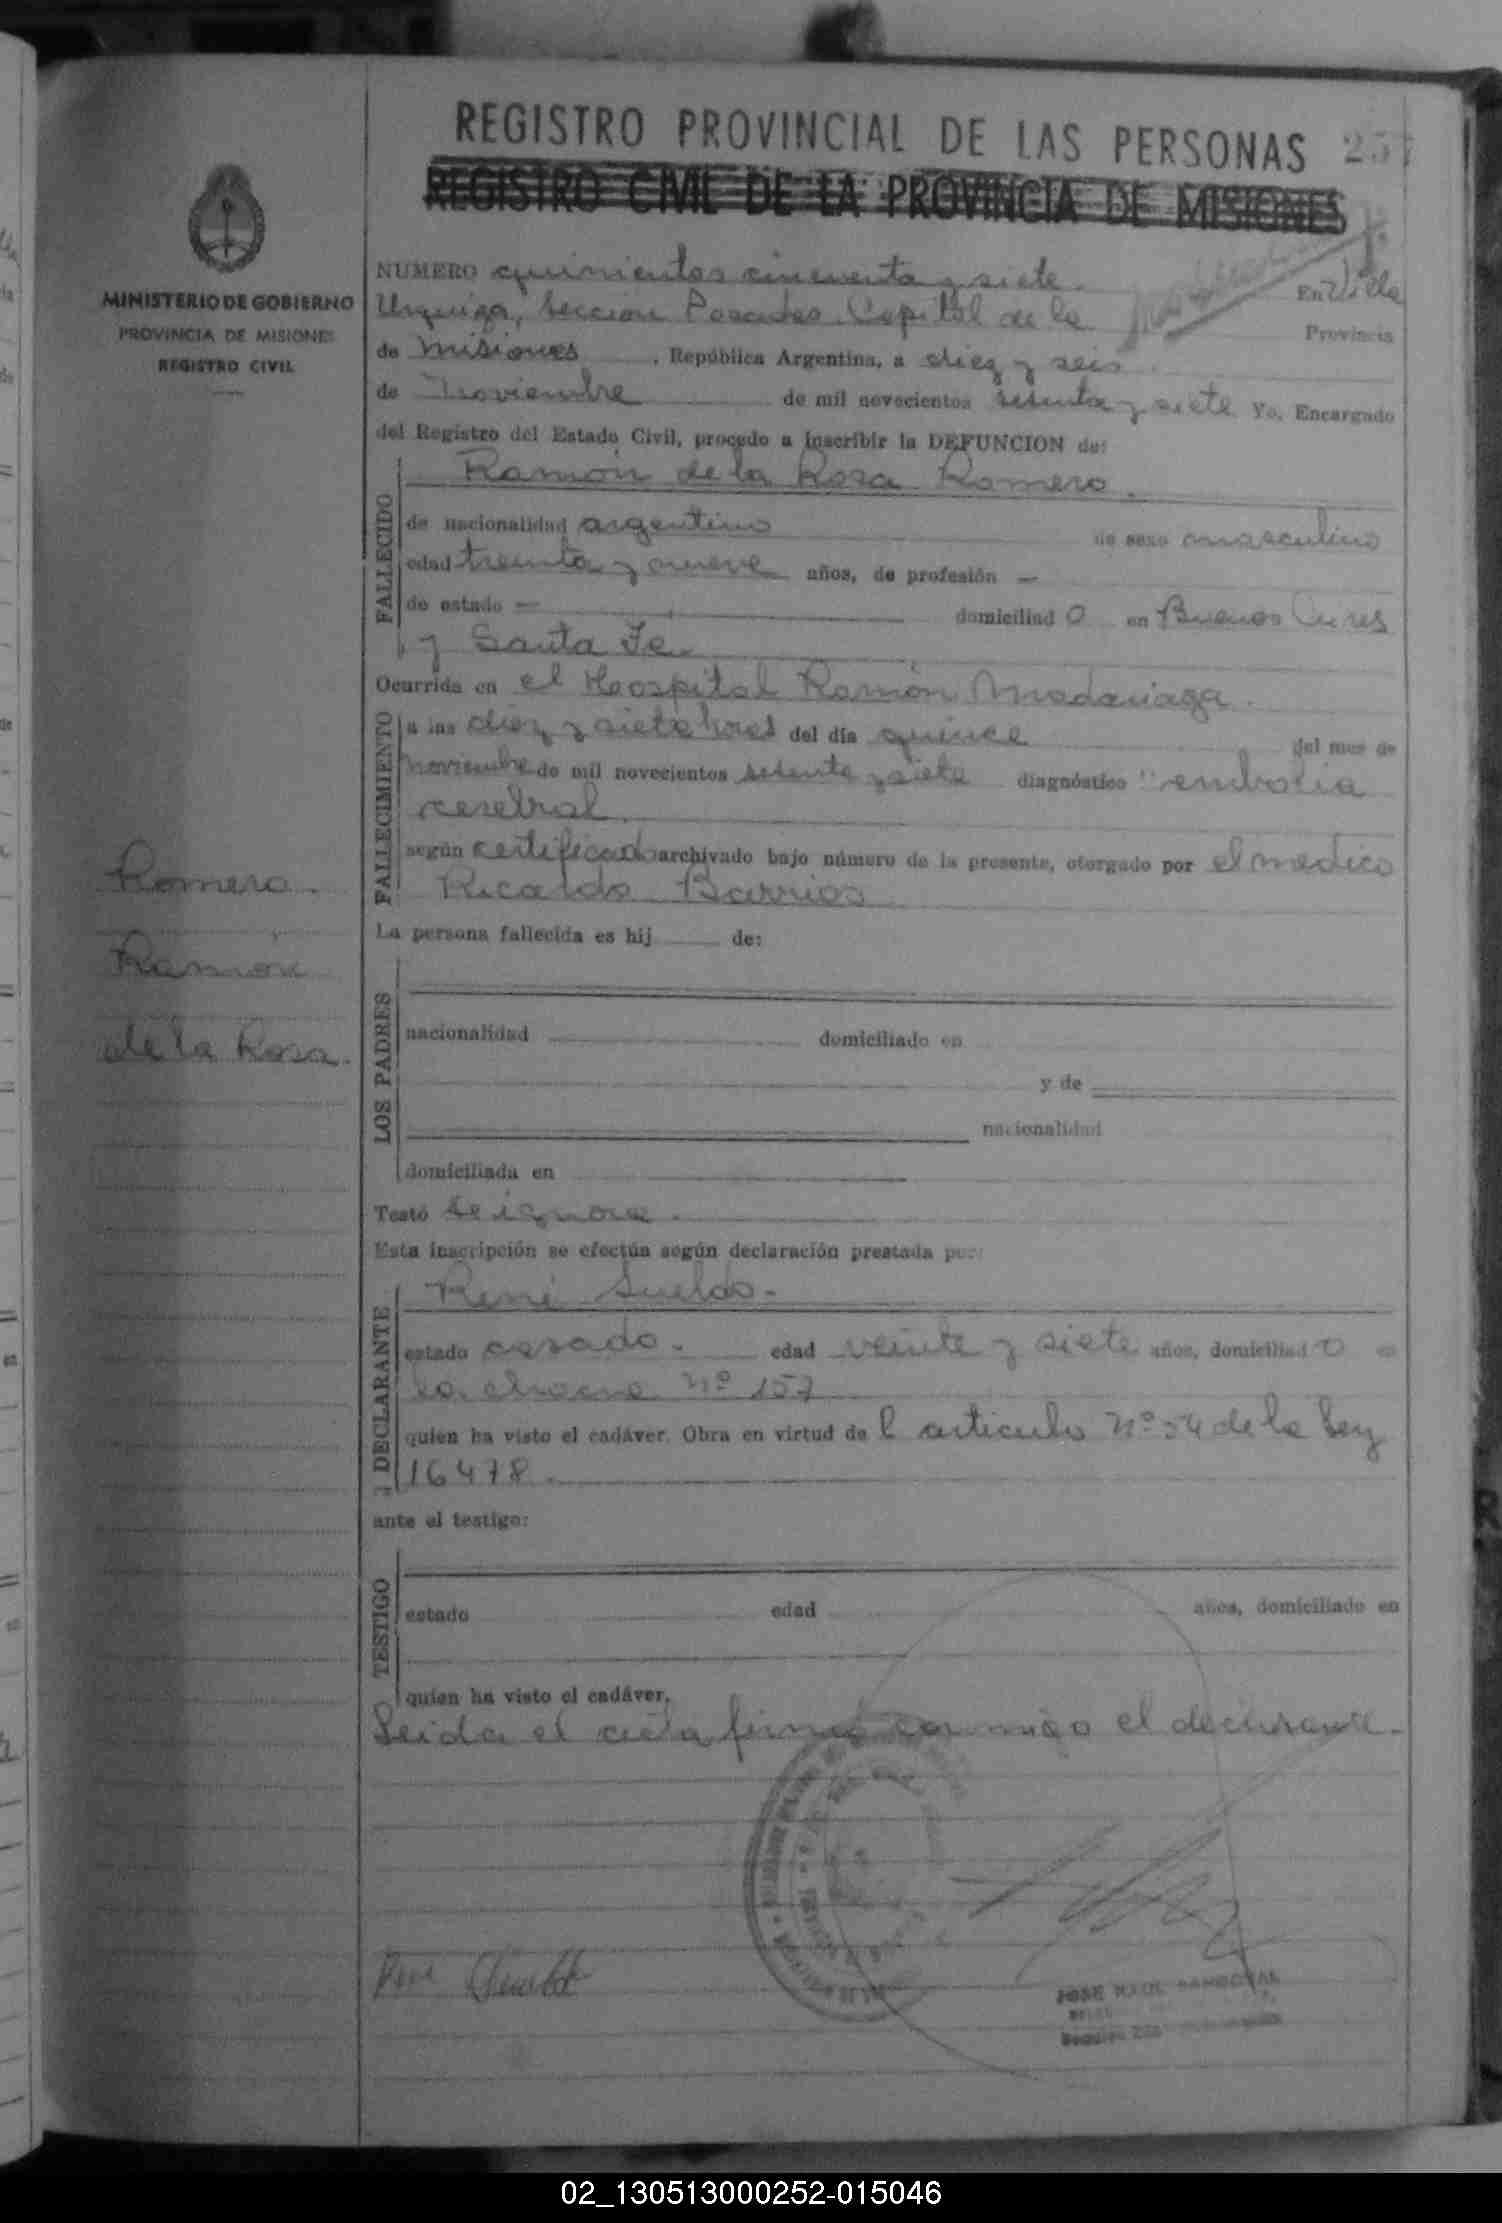 REGISTRO PROVINCIAL DE LAS PERSONAS 257
REGISTRO CIVIL DE LA PROVINCIA DE MISIONES
MINISTERIO DE GOBIERNO
PROVINCIA DE MISIONES
REGISTRO CIVIL
NUMERO quinientos cincuenta y siete. En Villa
Urquiza, Sección Posadas Capital de la Provincia
de Misiones, República Argentina, a diez y seis
de Noviembre de mil novecientos setenta y siete Yo, Encargado
del Registro del Estado Civil, procedo a inscribir la DEFUNCION de:
FALLECIDO
Ramón de la Rosa Romero.
de nacionalidad argentino de sexo masculino
edad treinta y nueve años, de profesión —
de estado — domiciliado en Buenos Aires
y Santa Fe.
Ocurrida en el Hospital Ramón Madariaga.
FALLECIMIENTO
a las diez y siete horas del día quince del mes de
Noviembre de mil novecientos setenta y siete diagnóstico "embolia
cerebral.
según certificado archivado bajo número de la presente, otorgado por el médico
Ricardo Barrios
Romero.
Ramón
de la Rosa.
La persona fallecida es hij de:
LOS PADRES
nacionalidad domiciliado en
y de
nacionalidad
domiciliada en
Testó se ignora.
Esta inscripción se efectúa según declaración prestada por:
DECLARANTE
René Sueldo.
estado casado. edad veinte y siete años, domiciliado en
la chacra Nº 157
quien ha visto el cadáver. Obra en virtud del artículo Nº 54 de la Ley
16478.
ante el testigo:
TESTIGO
estado edad años, domiciliado en
quien ha visto el cadáver.
Leida el acta firma conmigo el declarante.
René Sueldo
JOSE RAUL SANDOVAL
02_130513000252-015046